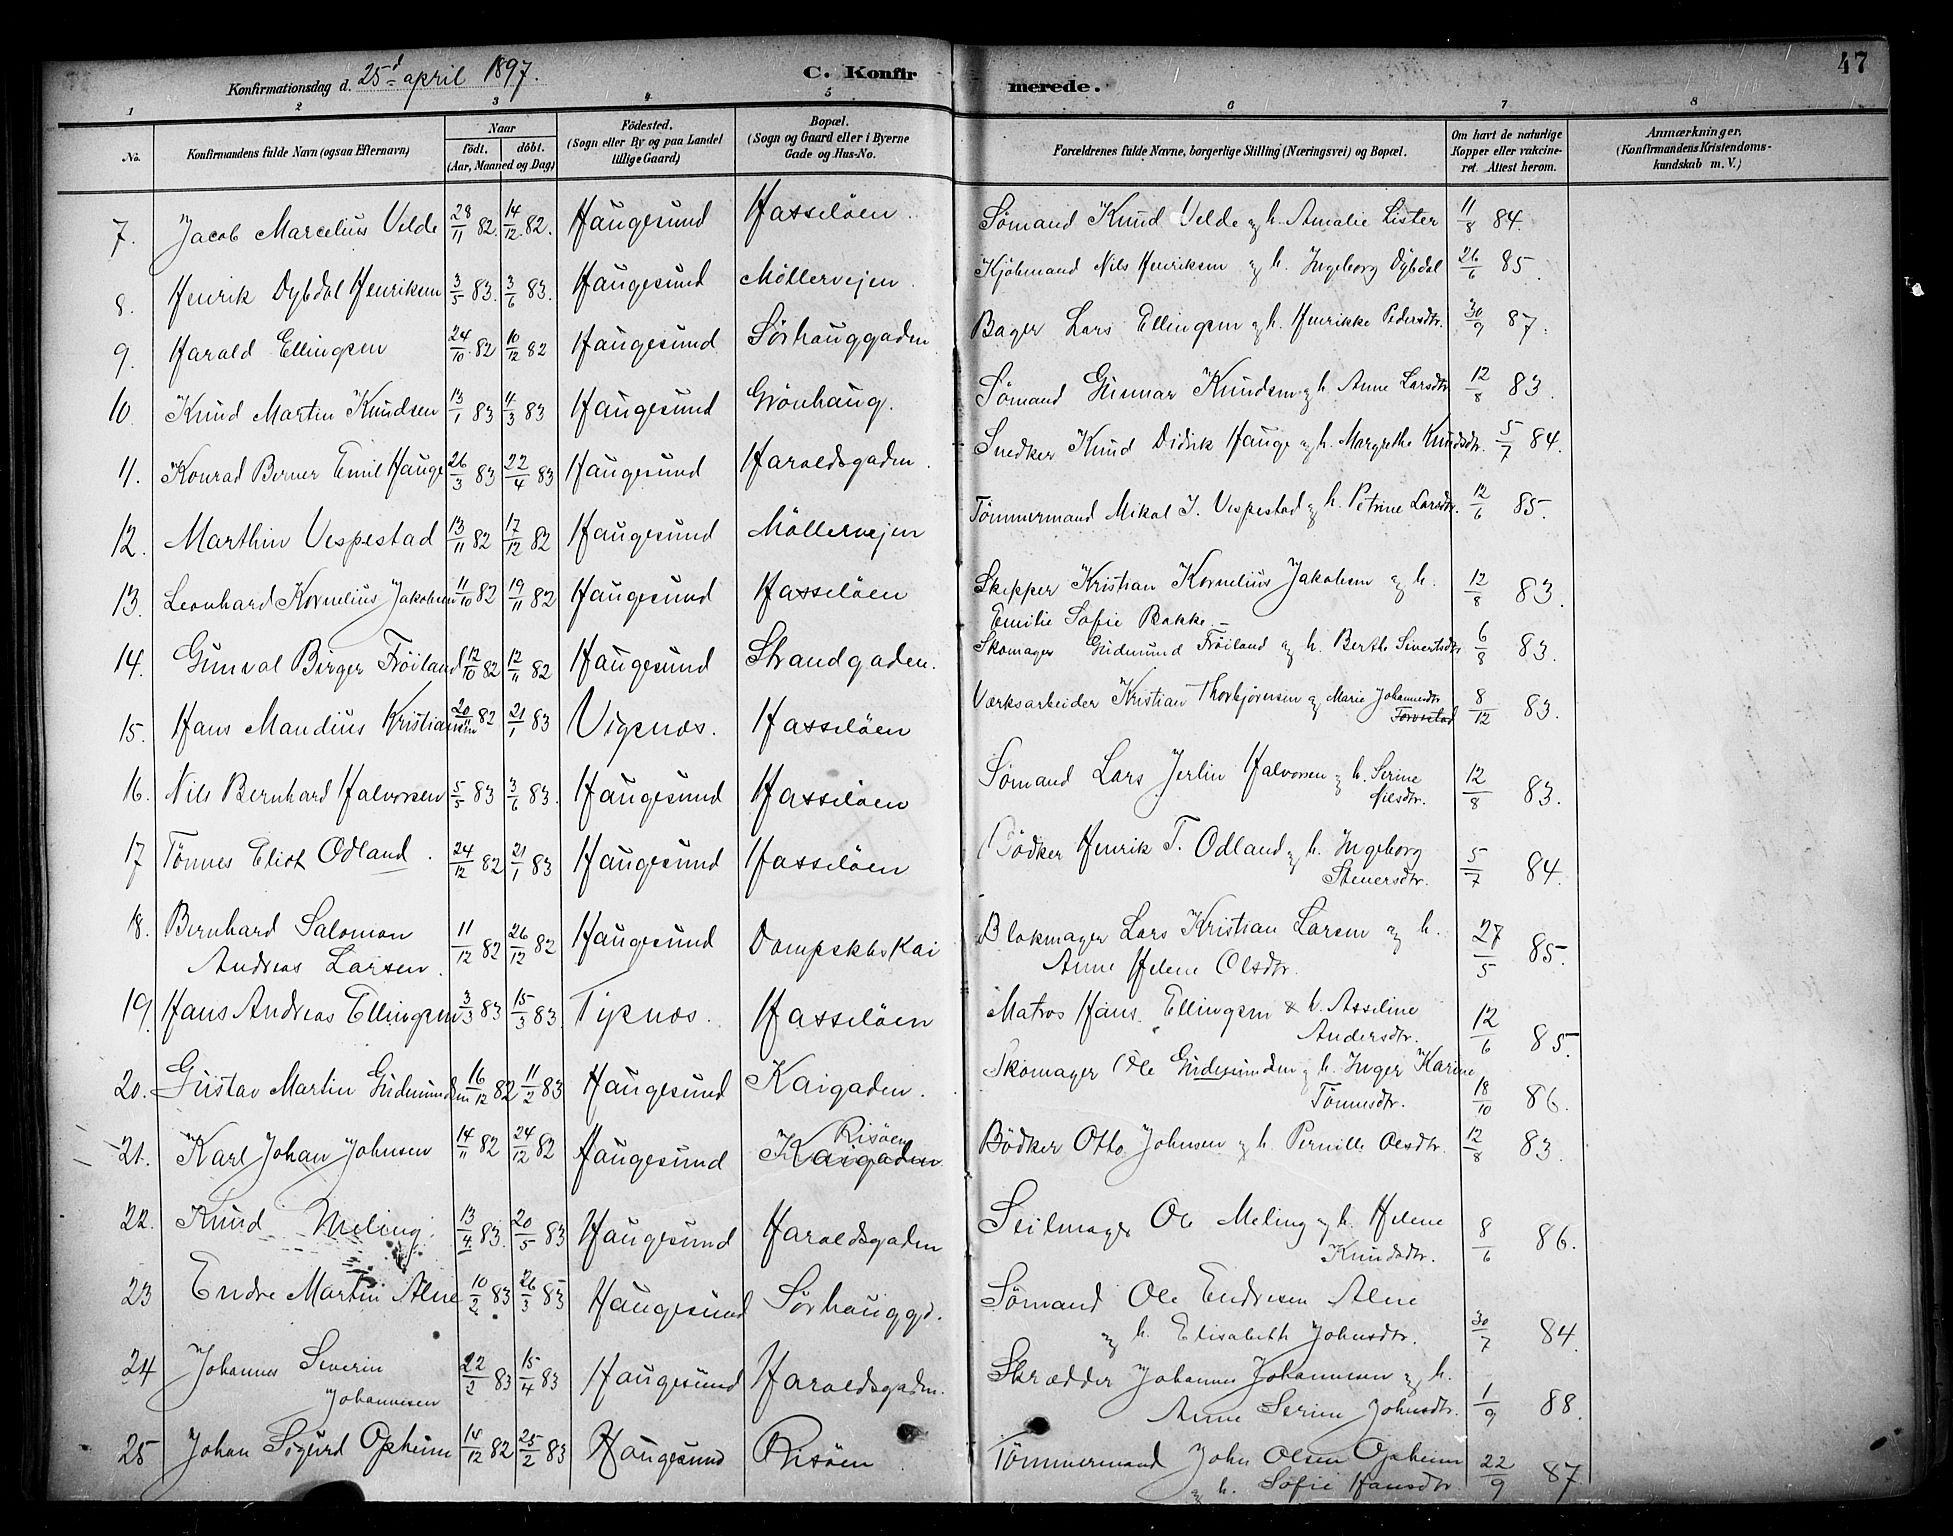 47
Konfirmationsdag d. 25d april 1897.
C. Konfirmerede.
1 2 3 4 5 6 7 8
No.
Konfirmandens fulde Navn (ogsaa Efternavn)
Naar
födt. döbt.
(Aar, Maaned og Dag)
Födested.
(Sogn eller By og paa Landet
tillige Gaard)
Bopæl.
(Sogn og Gaard eller i Byerne
Gade og Hus-No.
Forældrenes fulde Navne, borgerlige Stilling (Næringsvei) og Bopæl.
Om havt de naturlige
Kopper eller vakcine-
ret. Attest herom.
Anmærkninger,
(Konfirmandens Kristendoms-
kundskab m. V.)
7. Jacob Marcelius Velde 28/11 82. 14/12 82. Haugesund Hasseløen. Sømand Knud Velde og h. Amalie Lister 11/8 84.
8. Henrik Dybdal Henriksen 3/5 83. 3/6 83. Haugesund Møllervejen. Kjøbmand Nils Henriksen og h. Ingeborg Dybdal 26/6 85.
9. Harald Ellingsen 24/10 82 10/12 82 Haugesund Sørhauggaden Bager Lars Ellingsen og h. Henrikke Pedersdtr. 30/9 87.
10. Knud Martin Knudsen 13/1 83 4/3 83 Haugesund Grønhaug. Sømand Gunnar Knudsen og h. Anne Larsdtr. 12/8 83.
11. Konrad Berner Emil Hauge 26/3 83 22/4 83 Haugesund Haraldsgaden. Snedker Knud Didrik Hauge og h. Margrethe Knudsdtr. 5/7 84.
12. Marthin Vespestad 13/11 82 17/12 82 Haugesund Møllervejen Tømmermand Mikal J. Vespestad og h. Petrine Larsdtr. 12/6 85.
13. Leonhard Kornelius Jakobsen 11/10 82 19/11 82 Haugesund Hasseløen Skipper Kristian Kornelius Jakobsen og h. 12/8 83.
Emilie Sofie Bakke.
14. Gunval Birger Frøiland 12/10 82 12/11 82 Haugesund Strandgaden. Skomager Gudmund Frøiland og h. Berthe Sivertsdtr 6/8 83.
15. Hans Mandius Kristiansen 20/11 82 21/1 83 Vigsnæs. Hasseløen Værksarbeider Kristian Thorbjørnsen og Marie Johannesdtr 8/12 83.
Torvestad
16. Nils Bernhard Halvorsen 5/5 83 3/6 83. Haugesund Hasseløen Sømand Lars Jerlin Halvorsen og h. Serine 12/8 83.
Nilsdtr.
17 Tønnes Eliot Odland. 24/12 82 21/1 83 Haugesund Hasseløen Bødker Henrik T. Odland og h. Ingeborg 5/7 84.
Stenersdtr.
18. Bernhard Salomon 11/12 82 26/12 82 Haugesund Dampskbs Kai Blokmager Lars Kristian Larsen og h. 27/5 85.
Andreas Larsen. Anne Helene Olsdtr.
19. Hans Andreas Ellingsen 3/3 83 15/3 83. Tysnæs. Hasseløen Matros Hans Ellingsen & h. Asseline 12/6 85.
Andersdtr.
20. Gustav Martin Gudmundsen 16/12 82 11/2 83 Haugesund Kaigaden. Skomager Ole Gudmundsen og h. Inger Karine
Tønnesdtr. 18/10 86.
21. Karl Johan Johnsen 14/11 82 24/12 82 Haugesund Kaigaden Risøen Bødker Otto Johnsen og h. Pernille Olsdtr. 12/8 83.
22. Knud Meling. 13/4 83. 20/5 83 Haugesund Haraldsgaden Seilmager Ole Meling og h. Helene 8/6 86.
Knudsdtr.
23 Endre Martin Alne 10/2 83 26/3 83 Haugesund Sørhauggd. Sømand Ole Endresen Alne
og h. Elisabeth Johnsdtr. 30/7 84.
24 Johannes Severin 22/2 83 15/4 83 Haugesund Haraldsgaden. Skrædder Johannes Johannesen og h.
Johannesen Anne Serine Johnsdtr. 1/9 88.
25 Johan Sigurd Opheim 14/12 82 25/2 83 Haugesund Risøen Tømmermand John Olsen Opheim 22/9 87
og h. Sofie Hansdtr.